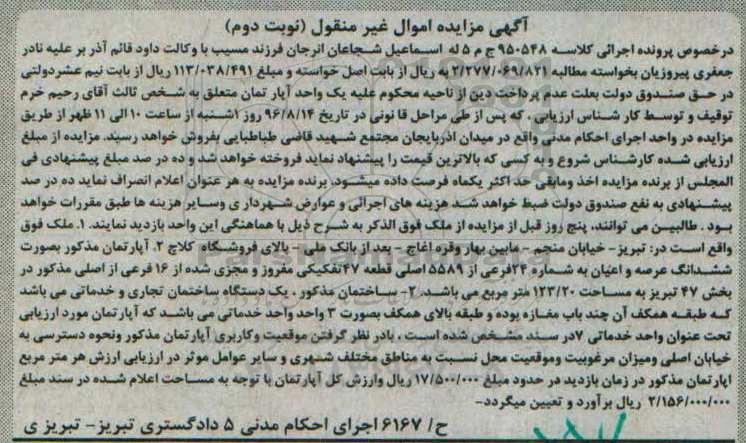 آگهی مزایده اموال غیر منقول (نوبت دوم)
درخصوص پرونده اجرائی کلاسه ۹۵۰۵۴۸ ج م ۵ له اسماعیل شجاعان انرجان فرزند مسیب با وکالت داود قائم آذر بر علیه نادر
جعفری پیروزیان بخواسته مطالبه ۲/۲۷۷/۰۶۹/۸۲۱ به ریال از بابت اصل خواسته و مبلغ ۱۱۳/۰۳۸/۴۹۱ ریال از بابت نیم عشردولتی
در حق صندوق دولت بعلت عدم پرداخت دین از ناحیه محکوم علیه یک واحد آپار تمان متعلق به شخص ثالث آقای رحیم خرم
توقیف و توسط کار شناس ارزیابی ، که پس از طی مراحل قا نونی در تاریخ ۹۶/۸/۱۴ روز ۱شنبه از ساعت ۱۰ الی ۱۱ ظهر از طریق
مزایده در واحد اجرای احکام مدنی واقع در میدان اذربایجان مجتمع شهید قاضی طباطبایی بفروش خواهد رسید. مزایده از مبلغ
ارزیابی شده کارشناس شروع و به کسی که بالاترین قیمت را پیشنهاد نماید فروخته خواهد شد و ده در صد مبلغ پیشنهادی فی
المجلس از برنده مزایده اخذ ومابقی حد اکثر یکماه فرصت داده میشود. برنده مزایده به هر عنوان اعلام انصراف نماید ده در صد
پیشنهادی به نفع صندوق دولت ضبط خواهد شد هزینه های اجرائی و عوارض شهردار ی وسایر هزینه ها طبق مقررات خواهد
بود . طالبین می توانند، پنج روز قبل از مزایده از ملک فوق الذکر به شرح ذیل با هماهنگی این واحد بازدید نمایند. ۱. ملک فوق
واقع است در: تبریز- خیابان منجم - مابین بهار وقره اغاج - بعد از بانک ملی - بالای فروشگاه کلاچ ۲. آپارتمان مذکور بصورت
ششدانگ عرصه و اعیان به شماره ۲۴فرعی از ۵۵۸۹ اصلی قطعه ۴۷تفکیکی مفروز و مجزی شده از ۱۶ فرعی از اصلی مذکور در
بخش ۴۷ تبریز به مساحت ۱۲۳/۲۰ متر مربع می باشد. ۲- ساختمان مذکور ، یک دستگاه ساختمان تجاری و خدماتی می باشد
که طبقه همکف آن چند باب مغازه بوده و طبقه بالای همکف بصورت ۳ واحد واحد خدماتی می باشد که آپارتمان مورد ارزیابی
تحت عنوان واحد خدماتی ۷در سند مشخص شده است . بادر نظر گرفتن موقعیت وکاربری آپارتمان مذکور ونحوه دسترسی به
خیابان اصلی ومیزان مرغوبیت وموقعیت محل نسبت به مناطق مختلف شهری و سایر عوامل موثر در ارزیابی ارزش هر متر مربع
اپارتمان مذکور در زمان بازدید در حدود مبلغ ۱۷/۵۰۰/۰۰۰ ریال وارزش کل آپارتمان با توجه به مساحت اعلام شده در سند مبلغ
۲/۱۵۶/۰۰۰/۰۰۰ ریال برآورد و تعیین میگردد-
ح/ ۶۱۶۷ اجرای احکام مدنی ۵ دادگستری تبریز- تبریز ی